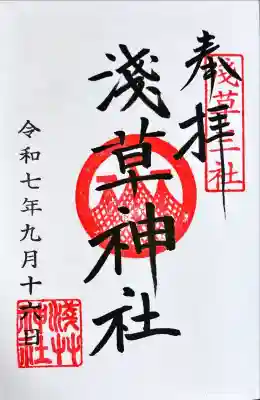 奉拝
淺草三社
淺草神社
令和七年九月十六日
淺艸神社